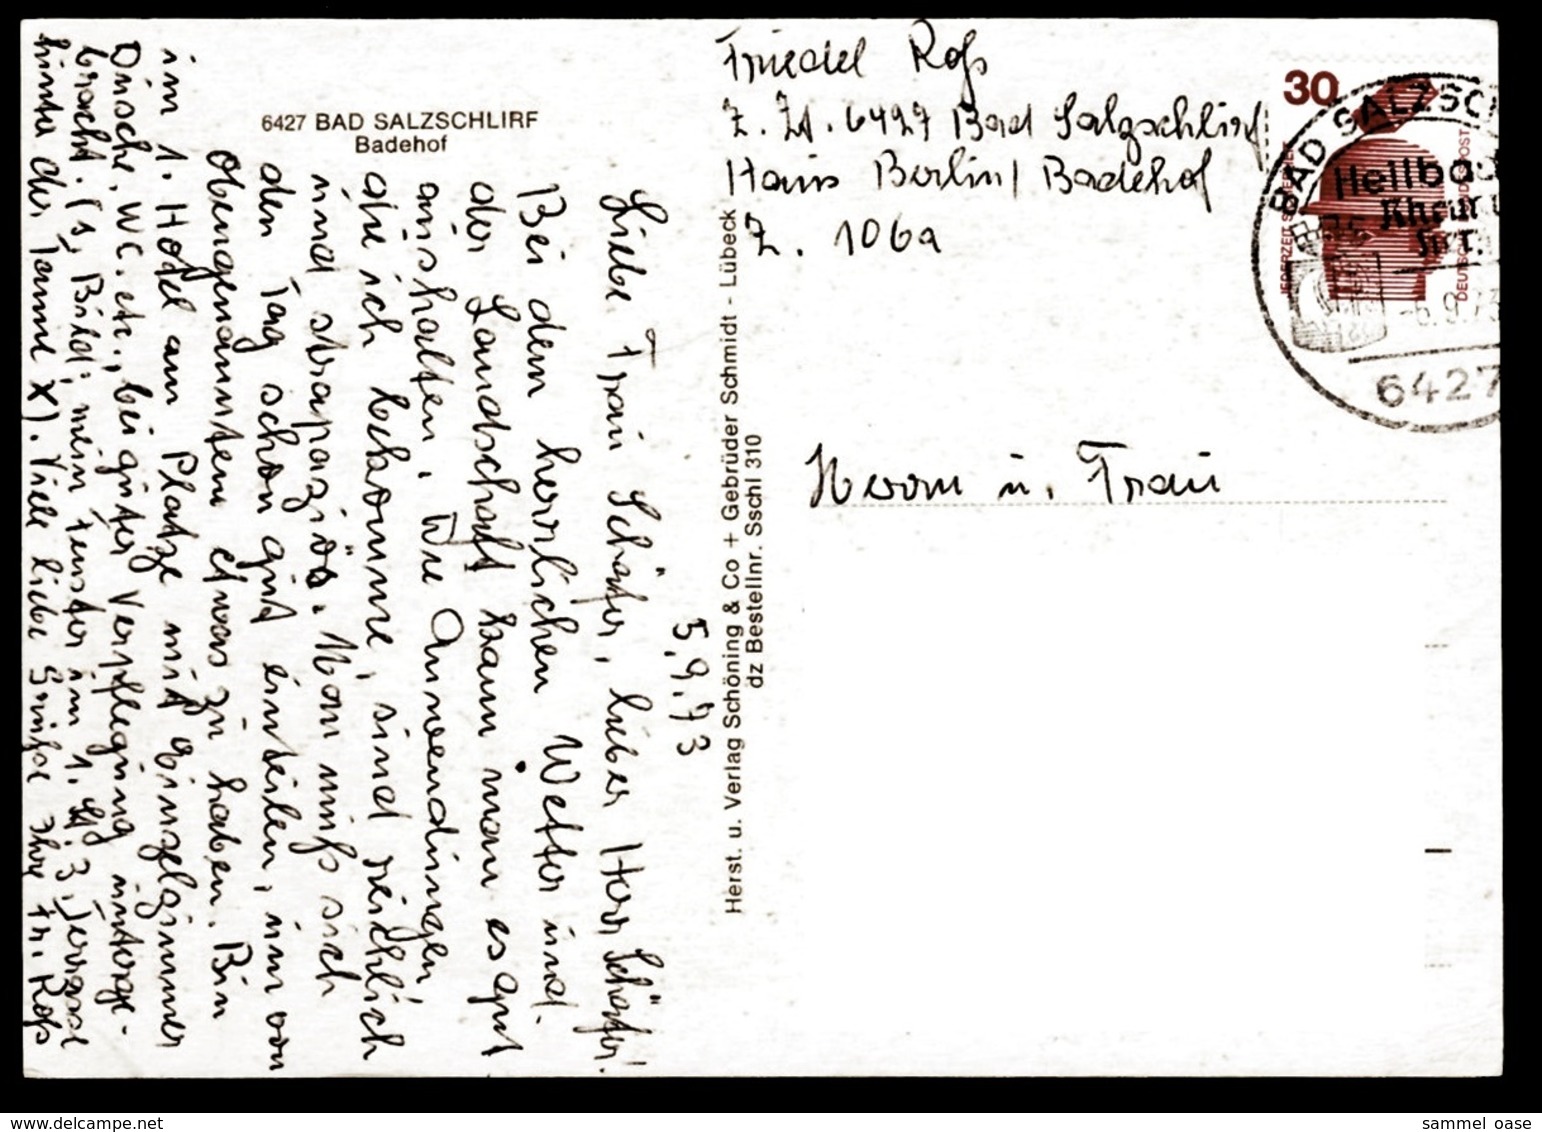 6427 BAD SALZSCHLIRF
Badehof
5.9.73
Liebe Frau Schäfer, lieber Herr Schäfer!
Bei dem herrlichen Wetter und
der Landschaft kann man es gut
aushalten. Die Anwendungen,
die ich bekomme, sind reichlich
und strapaziös. Man muß sich
den Tag schon gut einteilen, um von
Obengenanntem etwas zu haben. Bin
im 1. Hotel am Platze mit Einzelzimmer
Dusche, WC. etc., bei guter Verpflegung unterge-
bracht. (s. Bild: mein Fenster im 1. St. 3. Terrasse
hinter der Tanne X). Viele liebe Grüße Ihre Fr. Roß
Herst. u. Verlag Schöning & Co + Gebrüder Schmidt - Lübeck
dz Bestellnr. Sschl 310
Friedel Roß
z. Zt. 6427 Bad Salzschlirf
Haus Berlin / Badehof
Z. 106a
30
JEDERZEIT SICHERHEIT
DEUTSCHE BUNDESPOST
BAD SALZSC
Heilbad
Rheu
-6.9.73
6427
Herrn u. Frau
delcampe.net
sammel_oase